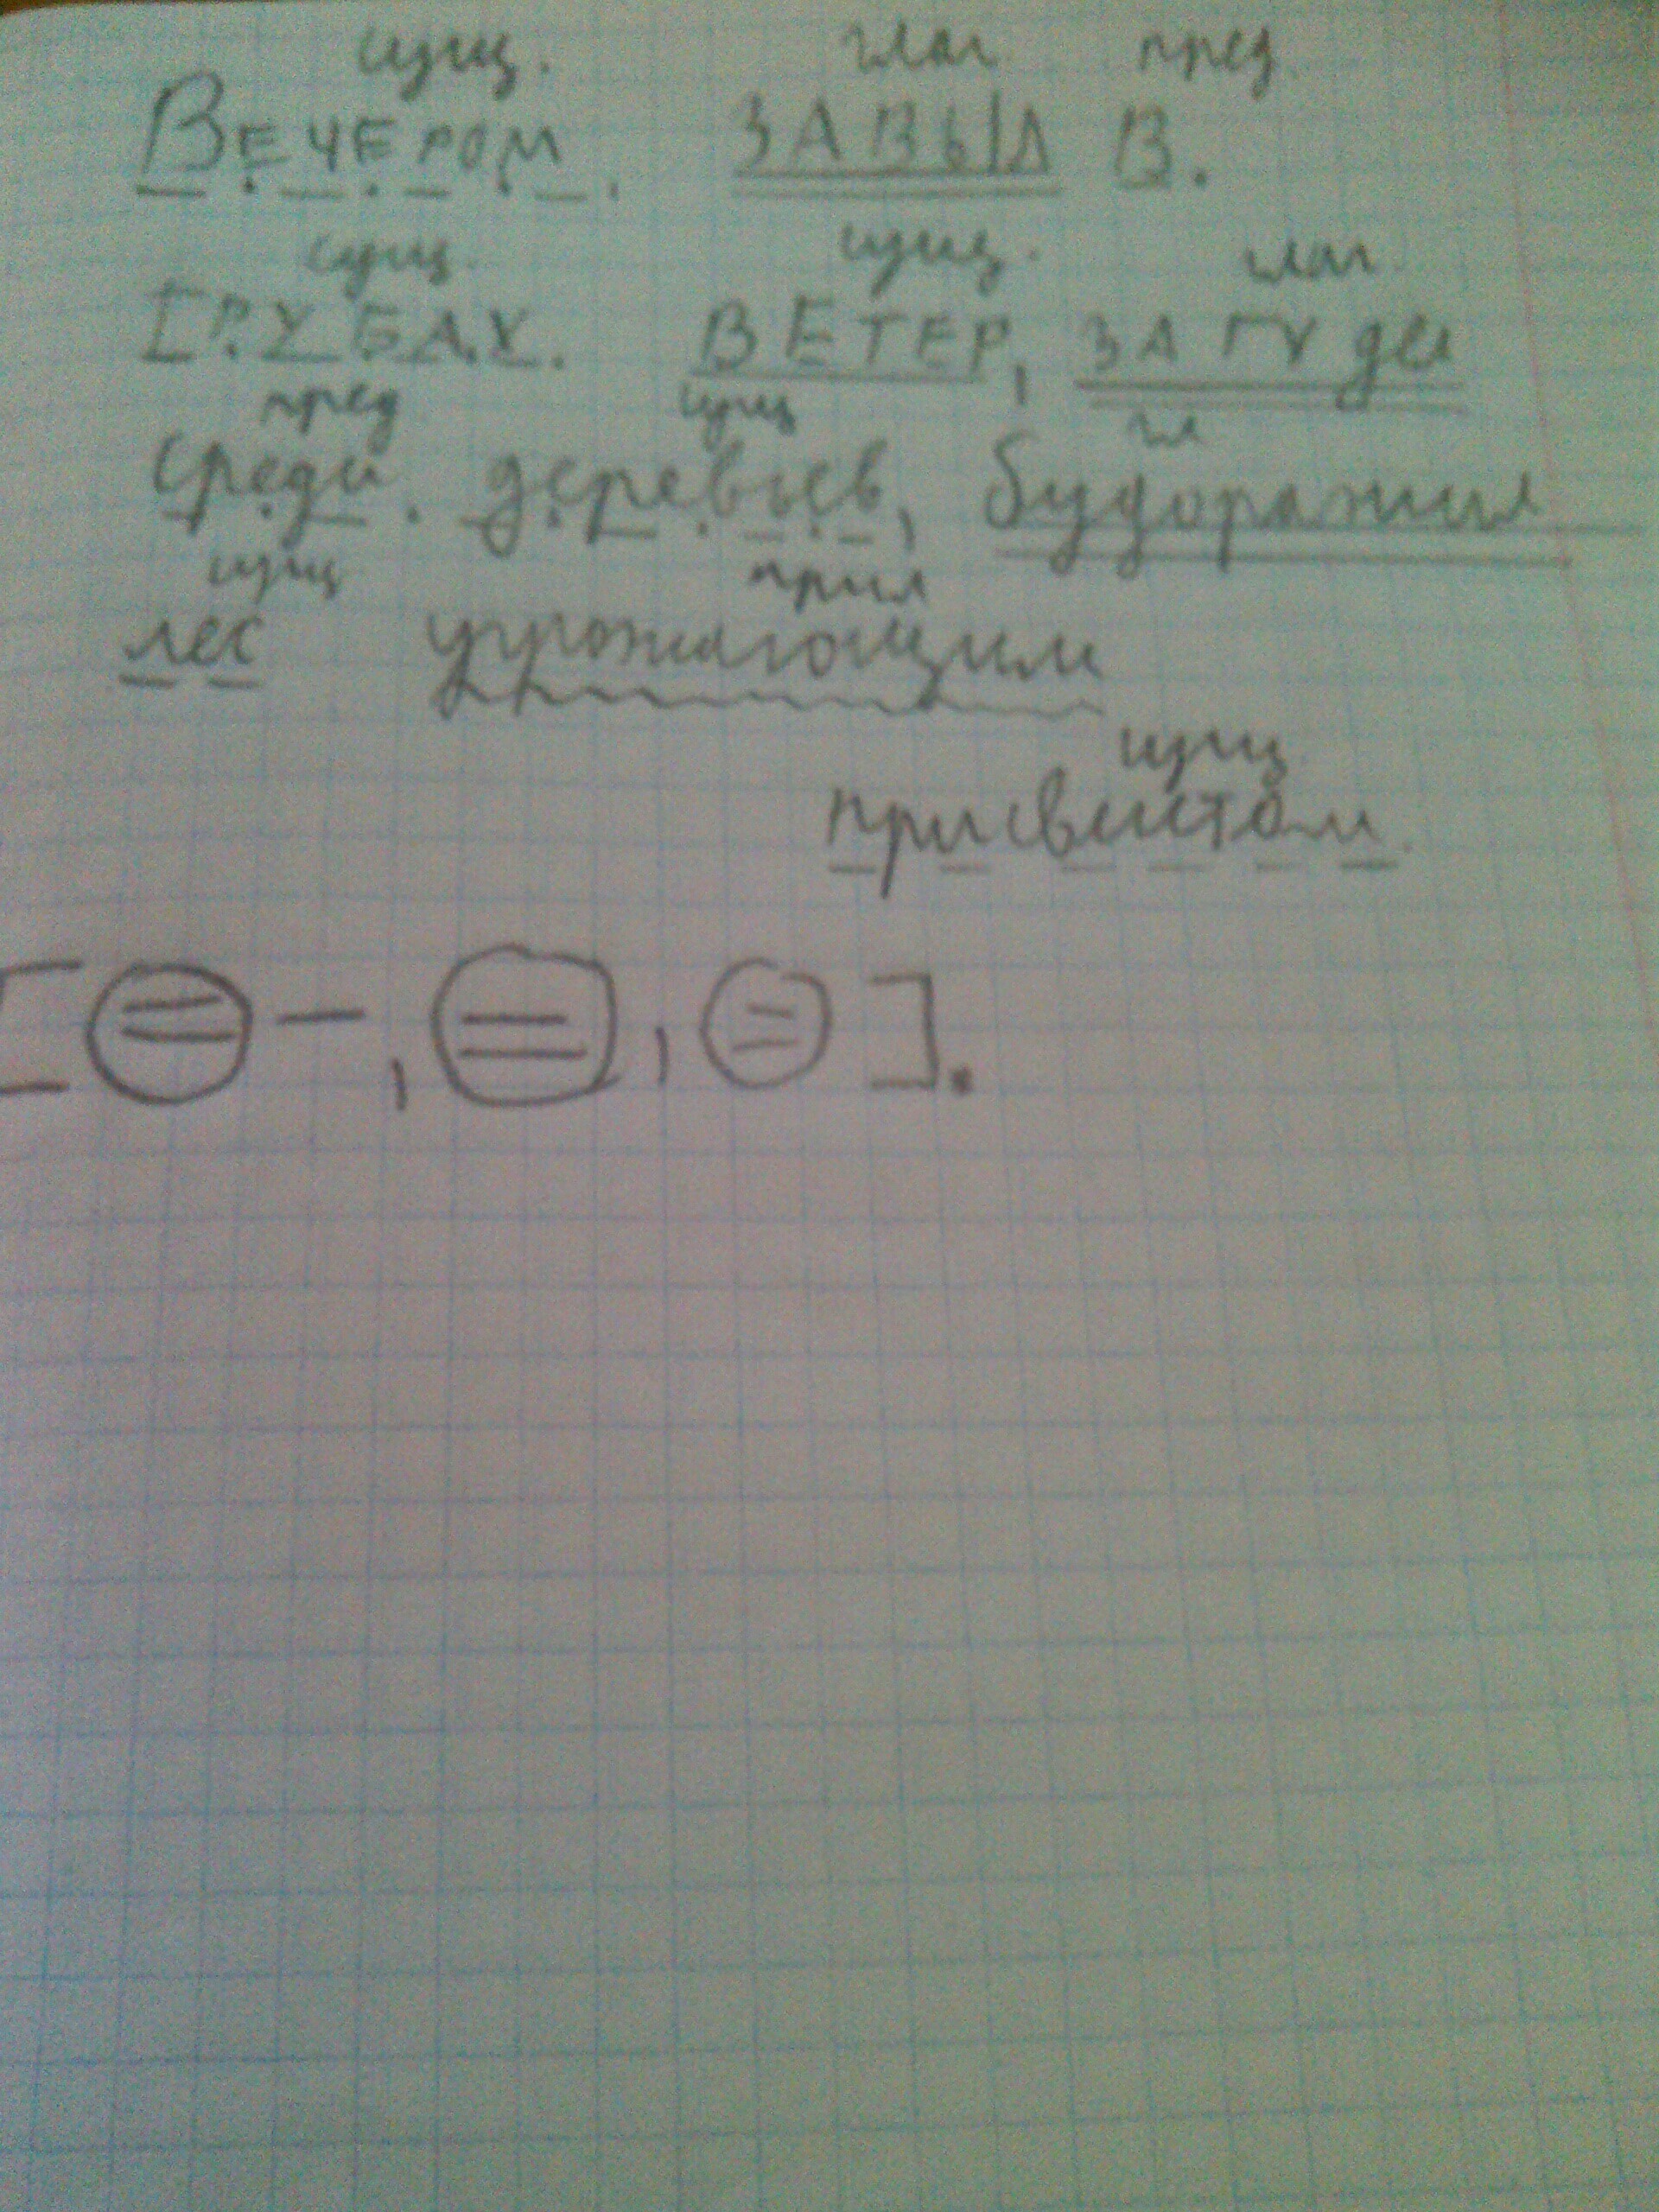 сущ. глаг пред.
ВЕЧЕРОМ ЗАВЫЛ В
сущ. сущ. глаг.
ТРУБАХ ВЕТЕР, ЗАГУдел
пред сущ гл
среди деревьев, будоражил
сущ прил
лес угрожающим
сущ.
присвистом.
[ = – , = , = ].